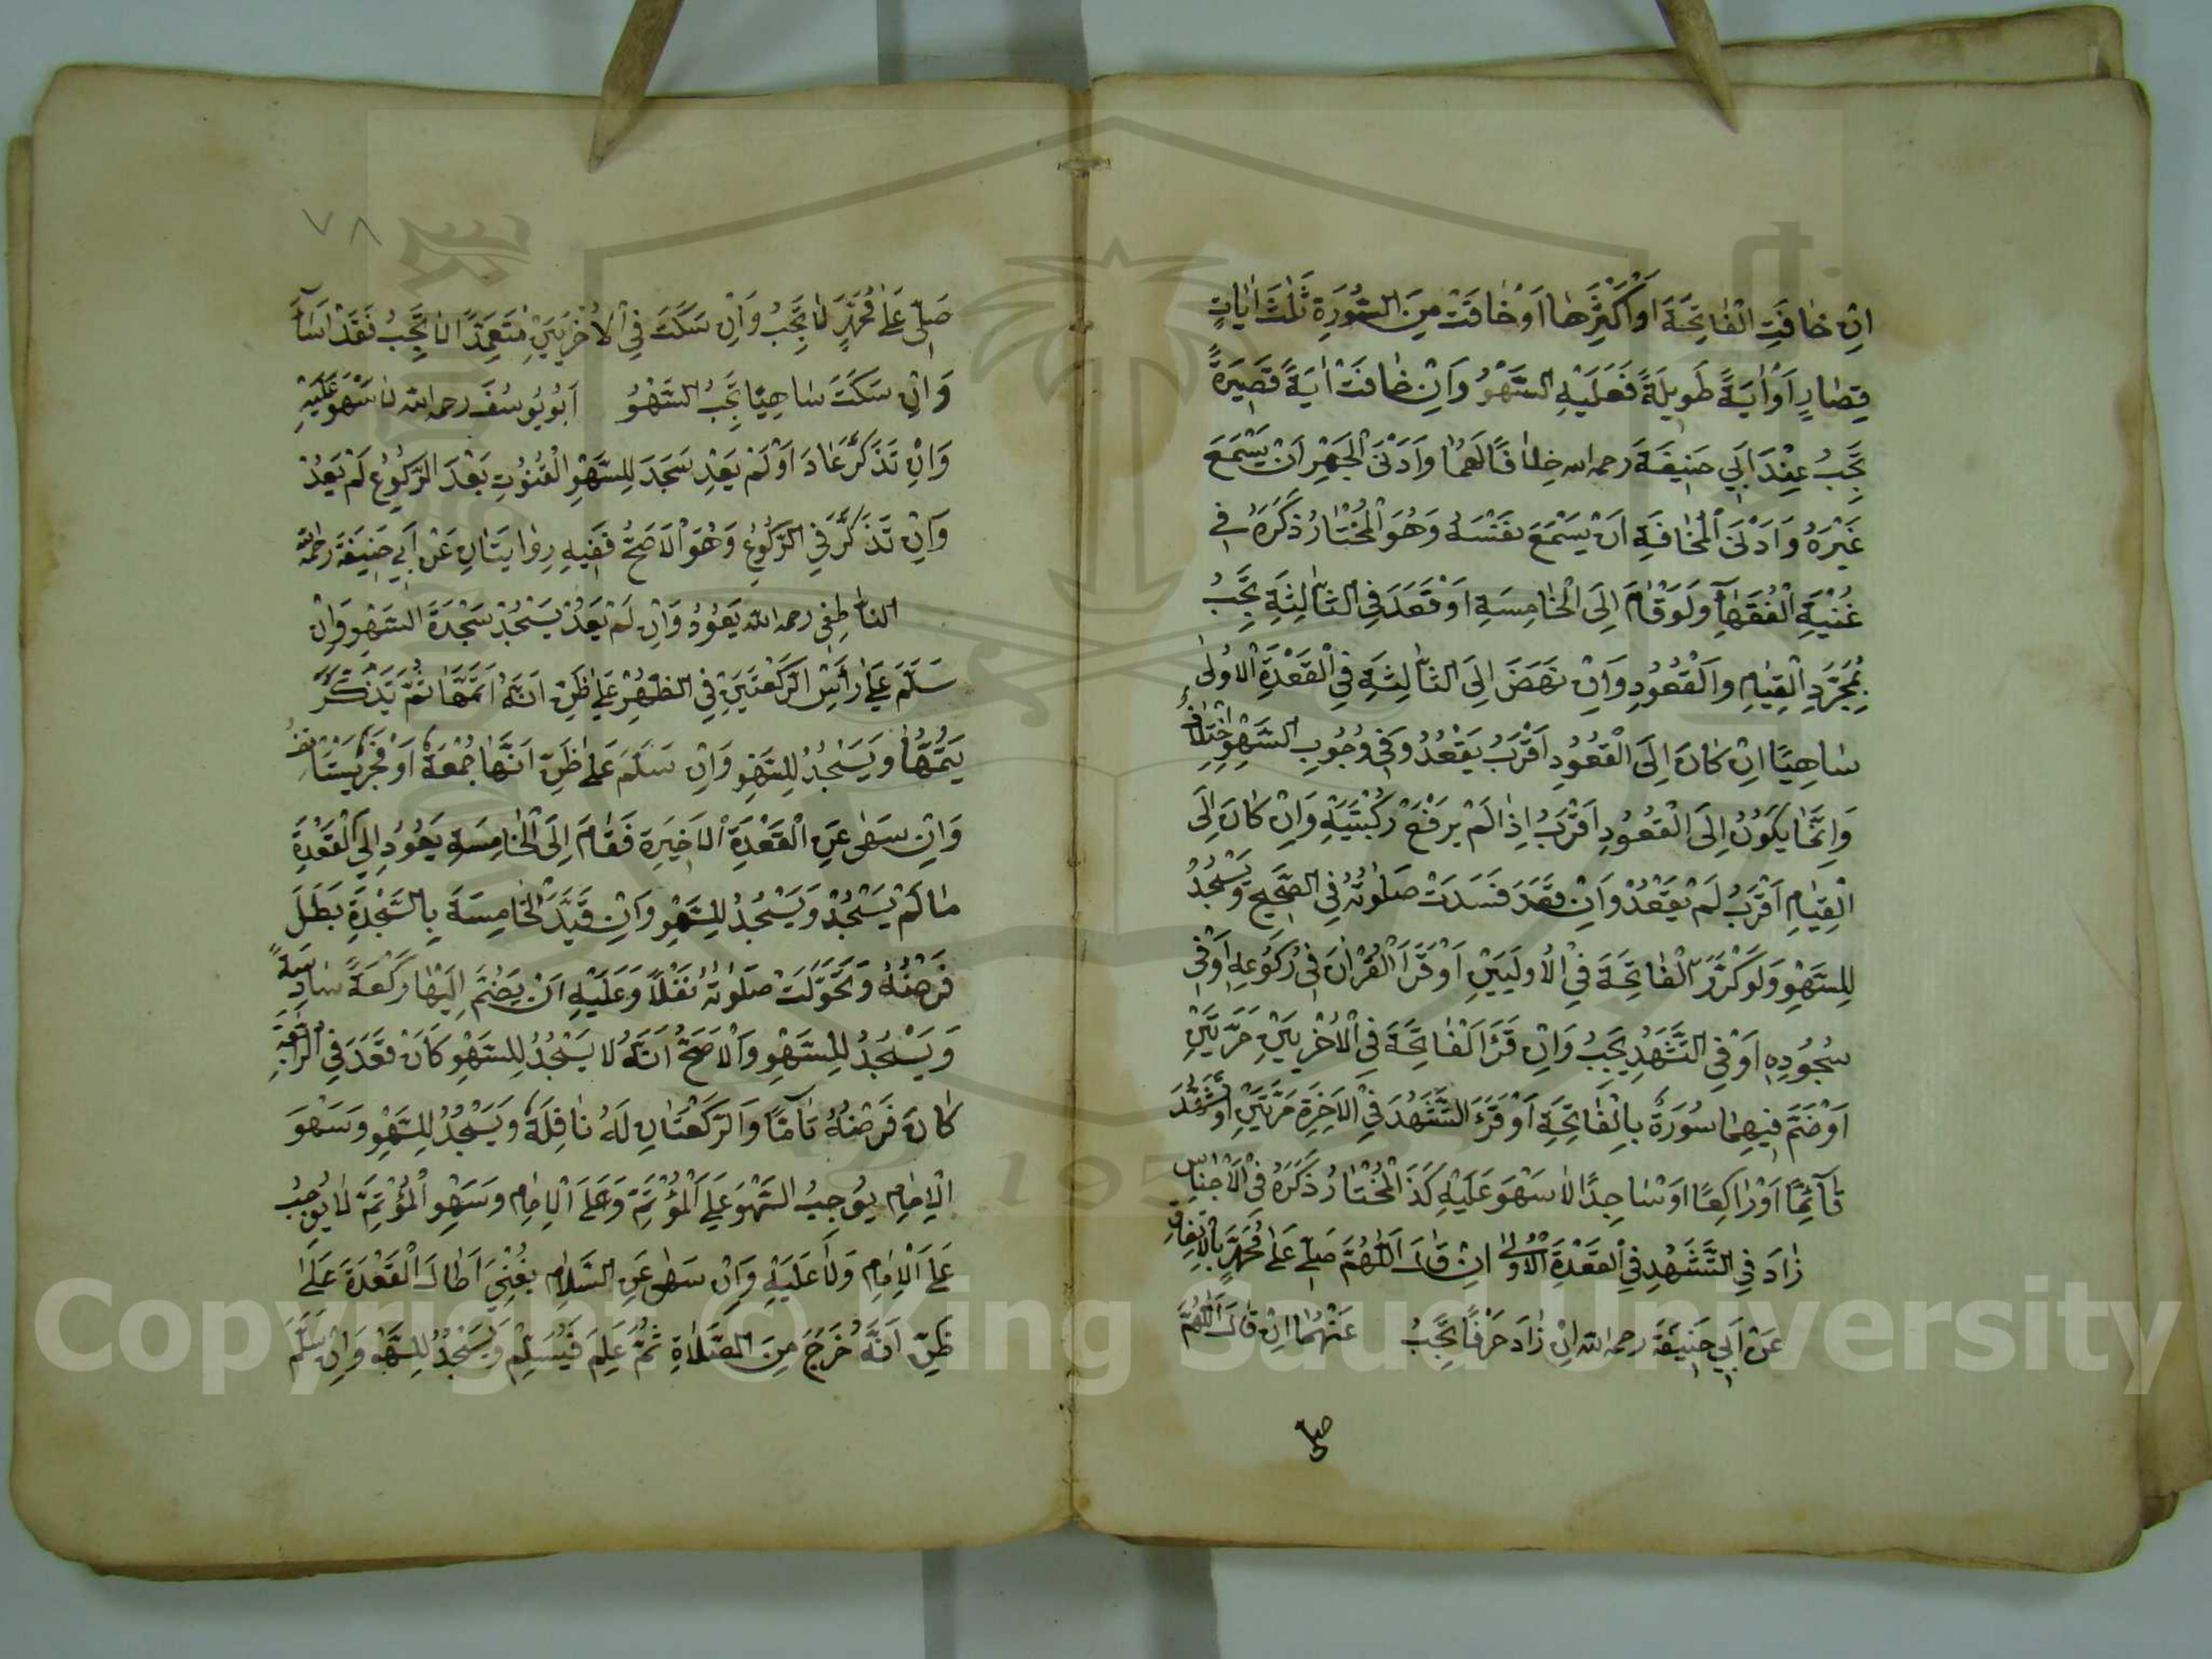 اِنْ خٰافَتِ الْفٰاتِحَةَ اَوْ اَكْثَرَهٰا اَوْ خٰافَتْ مِنَ السُّورَةِ ثَلٰثَ اٰيٰاتٍ
قِصٰارٍ اَوْ اٰيَةً طَوِيلَةً فَعَلَيْهِ السَّهْوُ وَاِنْ خٰافَتْ اٰيَةً قَصِيرَةً
يَجِبُ عِنْدَ اَبِي حَنِيفَةَ رحمه الله خِلٰافًا لَهُمٰا وَاَدْنَى الْجَهْرِ اَنْ يَسْمَعَ
غَيْرَهُ وَاَدْنَى الْمُخٰافَةِ اَنْ يَسْمَعَ نَفْسَهُ وَهُوَ الْمُخْتٰارُ ذَكَرَهُ فِي
غُنْيَةِ الْفُقَهٰاءِ وَلَوْ قٰامَ اِلَى الْخٰامِسَةِ اَوْ قَعَدَ فِي الثّٰالِثَةِ يَجِبُ
بِمُجَرَّدِ الْقِيٰامِ وَالْقُعُودِ وَاِنْ نَهَضَ اِلَى الثّٰالِثَةِ فِي الْقَعْدَةِ الْاُولٰى
سٰاهِيًا اِنْ كٰانَ اِلَى الْقُعُودِ اَقْرَبُ يَقْعُدُ وَفِي وُجُوبِ السَّهْوِ اخْتِلٰافٌ
وَاِنَّمٰا يَكُونُ اِلَى الْقُعُودِ اَقْرَبُ اِذٰا لَمْ يَرْفَعْ رُكْبَتَيْهِ وَاِنْ كٰانَ اِلَى
الْقِيٰامِ اَقْرَبُ لَمْ يَقْعُدْ وَاِنْ قَعَدَ فَسَدَتْ صَلٰوتُهُ فِي الصَّحِيحِ وَيَسْجُدُ
لِلسَّهْوِ وَلَوْ كَرَّرَ الْفٰاتِحَةَ فِي الْاُولَيَيْنِ اَوْ قَرَاَ الْقُرْاٰنَ فِي رُكُوعِهِ اَوْ فِي
سُجُودِهِ اَوْ فِي التَّشَهُّدِ يَجِبُ وَاِنْ قَرَاَ الْفٰاتِحَةَ فِي الْاُخْرَيَيْنِ مَرَّتَيْنِ
اَوْ ضَمَّ فِيهِمٰا سُورَةً بِالْفٰاتِحَةِ اَوْ قَرَءَ التَّشَهُّدَ فِي الْاَخِرَةِ مَرَّتَيْنِ اَوْ تَشَهَّدَ
قٰآئِمًا اَوْ رٰاكِعًا اَوْ سٰاجِدًا لٰا سَهْوَ عَلَيْهِ كَذَا الْمُخْتٰارُ ذَكَرَهُ فِي الْاَجْنٰاسِ
زٰادَ فِي التَّشَهُّدِ فِي الْقَعْدَةِ الْاُولٰى اِنْ قٰالَ اَللّٰهُمَّ صَلِّ عَلٰى مُحَمَّدٍ بِالْاِتِّفٰاقِ
عَنْ اَبِي حَنِيفَةَ رحمه الله اِنْ زٰادَ حَرْفًا يَجِبُ عَنْهُمٰا اِنْ قٰالَ اَللّٰهُمَّ
صل
٧٨
صَلِّ عَلٰى مُحَمَّدٍ لٰا يَجِبُ وَاِنْ سَكَتَ فِي الْاُخْرَيَيْنِ مُتَعَمِّدًا لٰا يَجِبُ فَقَدْ اَسٰآءَ
وَاِنْ سَكَتَ سٰاهِيًا يَجِبُ السَّهْوُ اَبُو يُوسُفَ رحمه الله لٰا سَهْوَ عَلَيْهِ
وَاِنْ تَذَكَّرَ عٰادَ اَوْ لَمْ يَعُدْ سَجَدَ لِلسَّهْوِ الْقُنُوتِ بَعْدَ الرُّكُوعِ لَمْ يَعُدْ
وَاِنْ تَذَكَّرَ فِي الرُّكُوعِ وَهُوَ الْاَصَحُّ فَفِيهِ رِوٰايَتٰانِ عَنْ اَبِي حَنِيفَةَ رحمه الله
النّٰاطِفِي رحمه الله يَعُودُ وَاِنْ لَمْ يَعُدْ يَسْجُدْ سَجْدَةَ السَّهْوِ وَاِنْ
سَلَّمَ عَلٰى رَأْسِ الرَّكْعَتَيْنِ فِي الظُّهْرِ عَلٰى ظَنِّ اَنَّهُ اَتَمَّهٰا ثُمَّ تَذَكَّرَ
يُتِمُّهٰا وَيَسْجُدُ لِلسَّهْوِ وَاِنْ سَلَّمَ عَلٰى ظَنِّ اَنَّهٰا جُمُعَةٌ اَوْ فَجْرٌ يَسْتَأْنِفُ
وَاِنْ سَهٰى عَنِ الْقَعْدَةِ الْاَخِيرَةِ فَقٰامَ اِلَى الْخٰامِسَةِ يَعُودُ اِلَى الْقَعْدَةِ
مٰا لَمْ يَسْجُدْ وَيَسْجُدُ لِلسَّهْوِ وَاِنْ قَيَّدَ الْخٰامِسَةَ بِالسَّجْدَةِ بَطَلَ
فَرْضُهُ وَتَحَوَّلَتْ صَلٰوتُهُ نَفْلًا وَعَلَيْهِ اَنْ يَضُمَّ اِلَيْهٰا رَكْعَةً سٰادِسَةً
وَيَسْجُدُ لِلسَّهْوِ وَالْاَصَحُّ اَنَّهُ لَا يَسْجُدُ لِلسَّهْوِ كَاَنْ قَعَدَ فِي الرّٰابِعَةِ
كٰانَ فَرْضُهُ تٰآمًّا وَالرَّكْعَتٰانِ لَهُ نٰافِلَةٌ وَيَسْجُدُ لِلسَّهْوِ وَسَهْوُ
الْاِمٰامِ يُوجِبُ السَّهْوَ عَلَى الْمُؤْتَمِّ وَعَلَى الْاِمٰامِ وَسَهْوُ الْمُؤْتَمِّ لٰا يُوجِبُ
عَلَى الْاِمٰامِ وَلٰا عَلَيْهِ وَاِنْ سَهٰى عَنِ السَّلٰامِ يَعْنِي اَطٰالَ الْقَعْدَةَ عَلٰى
ظَنِّ اَنَّهُ خَرَجَ مِنَ الصَّلٰاةِ ثُمَّ عَلِمَ فَيُسَلِّمُ وَيَسْجُدُ لِلسَّهْوِ وَاِنْ سَلَّمَ
Copyright © King Saud University